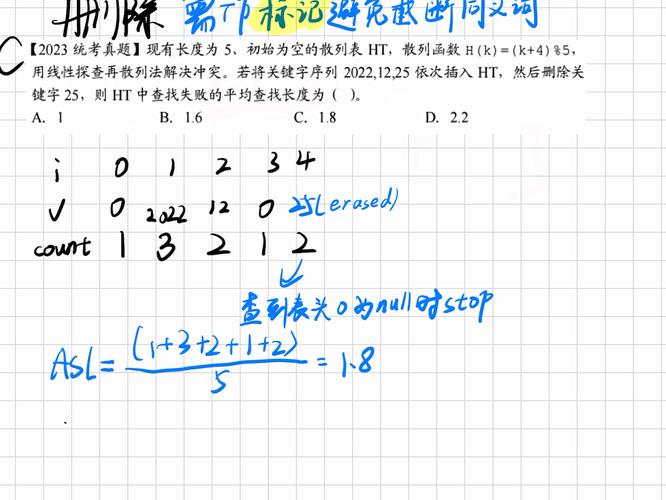 删除 需作标记避免截断同义词
C【2023 统考真题】现有长度为 5、初始为空的散列表 HT，散列函数 H(k)=(k+4)%5，
用线性探查再散列法解决冲突。若将关键字序列 2022,12,25 依次插入 HT，然后删除关
键字 25，则 HT 中查找失败的平均查找长度为（ ）。
A. 1 B. 1.6 C. 1.8 D. 2.2
i 0 1 2 3 4
v 0 2022 12 0 25(erased)
count 1 3 2 1 2
查到表头0为null时stop
ASL= (1+3+2+1+2)/5 = 1.8